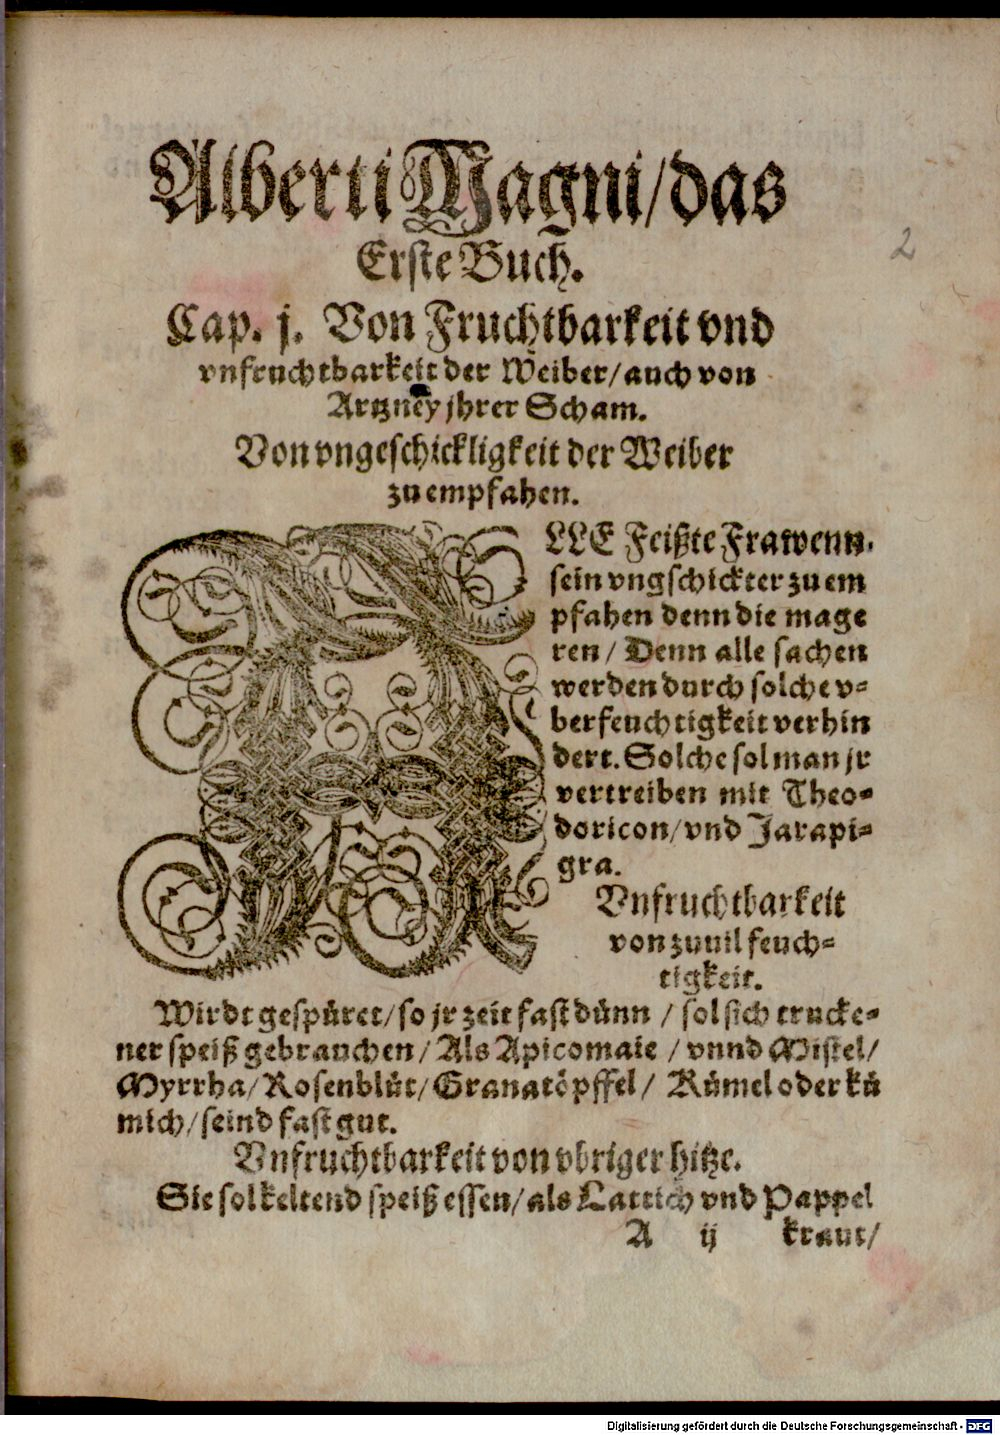 Alberti Magni/das
Erste Buch.
2
Cap. j. Von Fruchtbarkeit vnd
vnfruchtbarkeit der Weiber/auch von
Artzney jhrer Scham.
Von vngeschickligkeit der Weiber
zu empfahen.
ALLE Feißte Frawenn,
sein vngschickter zu em
pfahen denn die mage
ren/ Denn alle sachen
werden durch solche v-
berfeuchtigkeit verhin
dert. Solche sol man jr
vertreiben mit Theo-
doricon/vnd Jarapi-
gra.
Vnfruchtbarkeit
von zuuil feuch-
tigkeit.
Wirdt gespüret/so jr zeit fast dünn / sol sich trucke-
ner speiß gebrauchen/Als Apicomaie / vnnd Mistel/
Myrrha/Rosenblüt/Granatöpffel/ Kümel oder kü
mich/seind fast gut.
Vnfruchtbarkeit von vbriger hitze.
Sie sol keltend speiß essen/als Lattich vnd Pappel
A ij kraut/
Digitalisierung gefördert durch die Deutsche Forschungsgemeinschaft - DFG